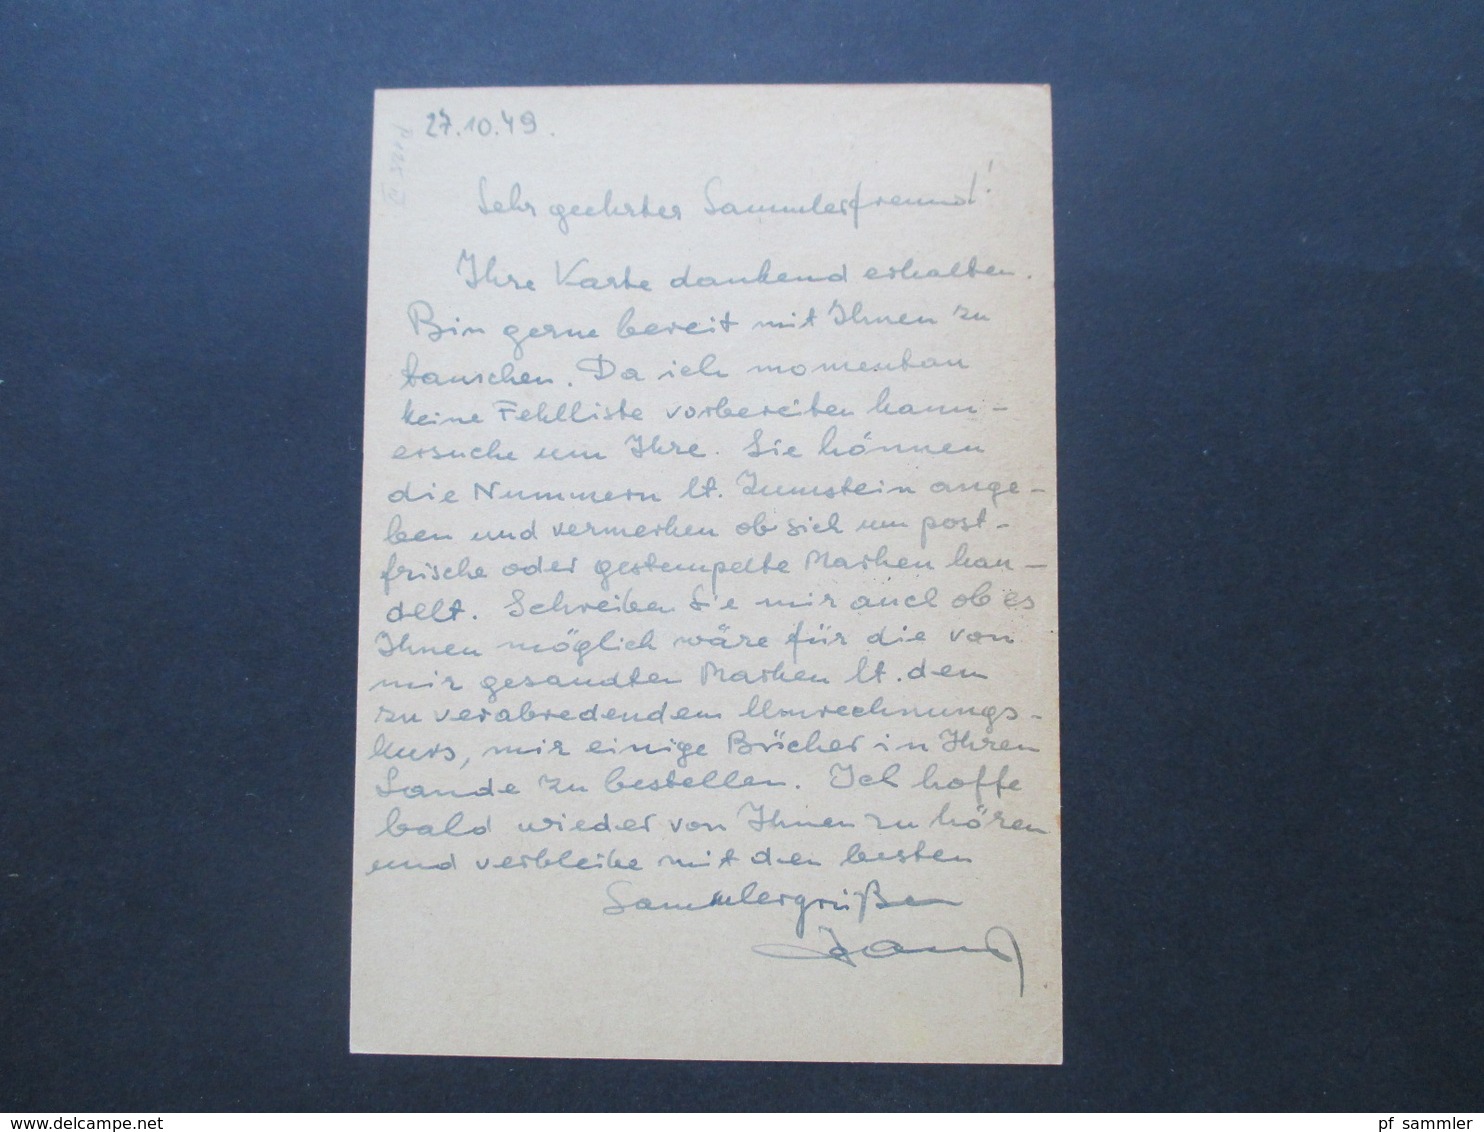 27.10.49.
Sehr geehrter Sammlerfreund!
Ihre Karte dankend erhalten.
Bin gerne bereit mit Ihnen zu
tauschen. Da ich momentan
keine Fehlliste vorbereiten kann -
ersuche um Ihre. Sie können
die Nummern lt. Zumstein ange-
ben und vermerken ob sich um post-
frische oder gestempelte Marken han-
delt. Schreiben Sie mir auch ob es
Ihnen möglich wäre für die von
mir gesandten Marken lt. den
zu verabredendem Umrechnungs-
kurs, mir einige Bücher in Ihren
Lande zu bestellen. Ich hoffe
bald wieder von Ihnen zu hören
und verbleibe mit den besten
Sammlergrüßen
www.delcampe.net
pf_sammler